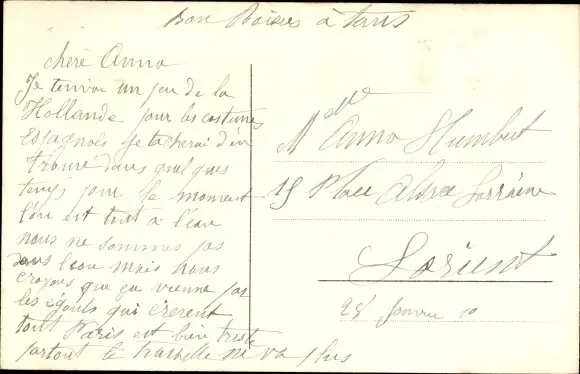 Bon Baisers à tous
chère Anna
Je t'envoie un peu de la
Hollande pour les costumes
Espagnols je tacherai d'en
trouvé dans quelques
temps pour le moment
l'on est tout à l'eau
nous ne sommes pas
dans l'eau mais nous
croyons que ça vienne par
les égouts qui crèrent
tout Paris est bien triste
partout le travaille ne va plus
Mdlle Anna Humbert
15 Place Alsace Lorraine
Lorient
28 Janvier 10